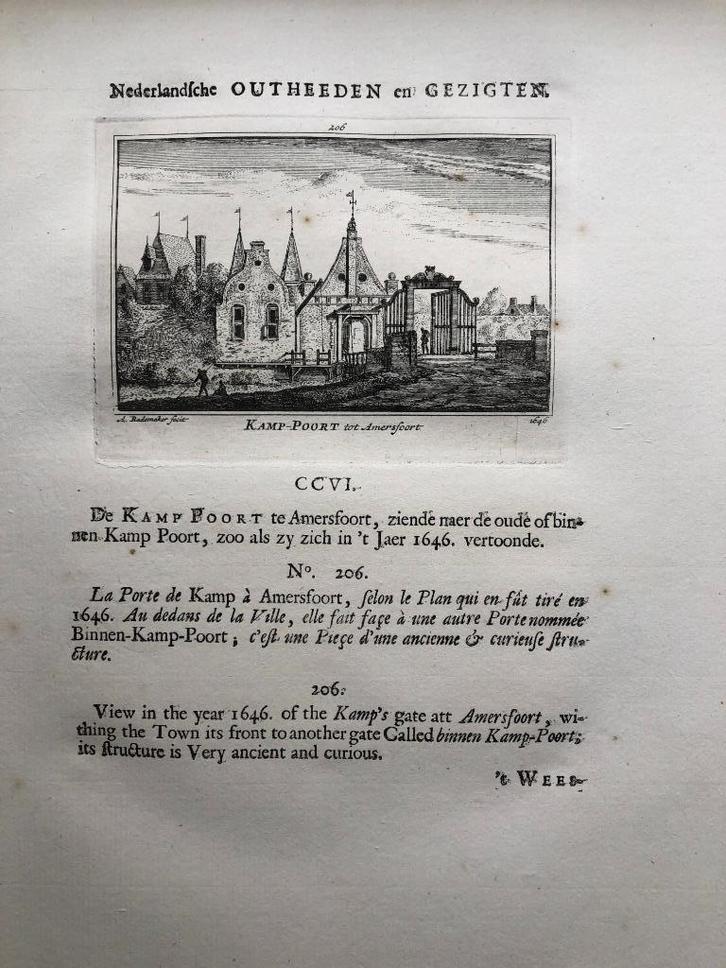 Nederlandſche OUTHEEDEN en GEZIGTEN.
206
A. Rademaker fecit
KAMP-POORT tot Amersfoort
1646
CCVI.
De KAMP POORT te Amersfoort, ziende naer de oude of bin-
nen Kamp Poort, zoo als zy zich in 't Jaer 1646. vertoonde.
N°. 206.
La Porte de Kamp à Amersfoort, ſelon le Plan qui en fût tiré en
1646. Au dedans de la Ville, elle fait façe à une autre Porte nommée
Binnen-Kamp-Poort; c'eſt une Pieçe d'une ancienne & curieuſe ſtru-
cture.
206.
View in the year 1646. of the Kamp's gate att Amersfoort, wi-
thing the Town its front to another gate Called binnen Kamp-Poort;
its ſtructure is Very ancient and curious.
't WEES-